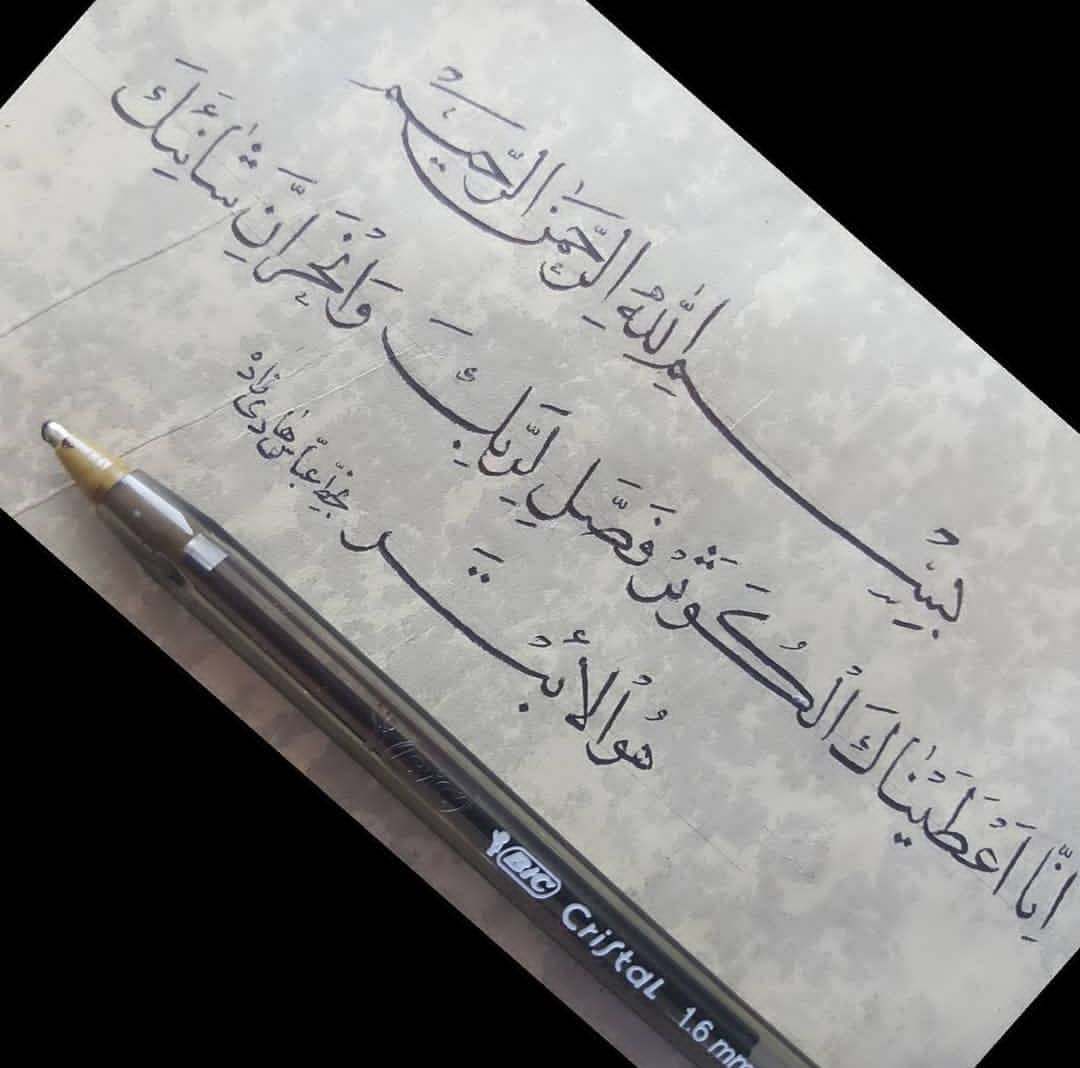 بِسْمِ اللّٰهِ الرَّحْمٰنِ الرَّحِيمِ
اِنَّا اَعْطَيْنَاكَ الْكَوْثَرَ فَصَلِّ لِرَبِّكَ وَانْحَرْ اِنَّ شَانِئَكَ
هُوَ الْأَبْتَرُ
عباس هادی زاده
BIC Cristal 1.6 mm